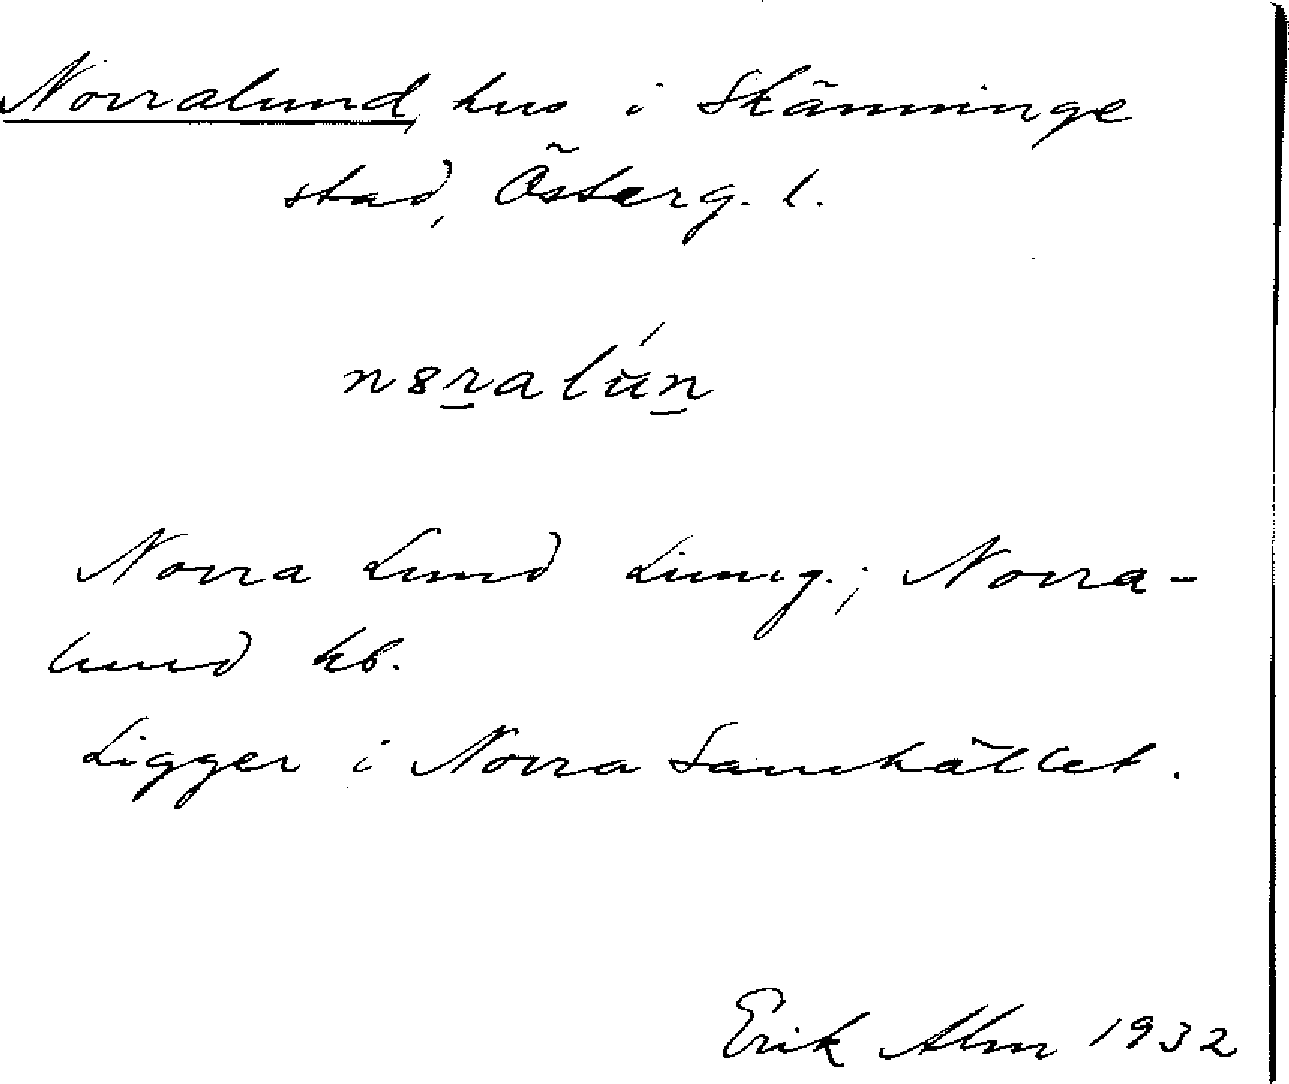 Norralund, hus i Skänninge
stad, Österg. l.
n8ralún
Norra Lund Ljung.; Norra-
lund kb.
Ligger i Norra Samhället.
Erik Alm 1932